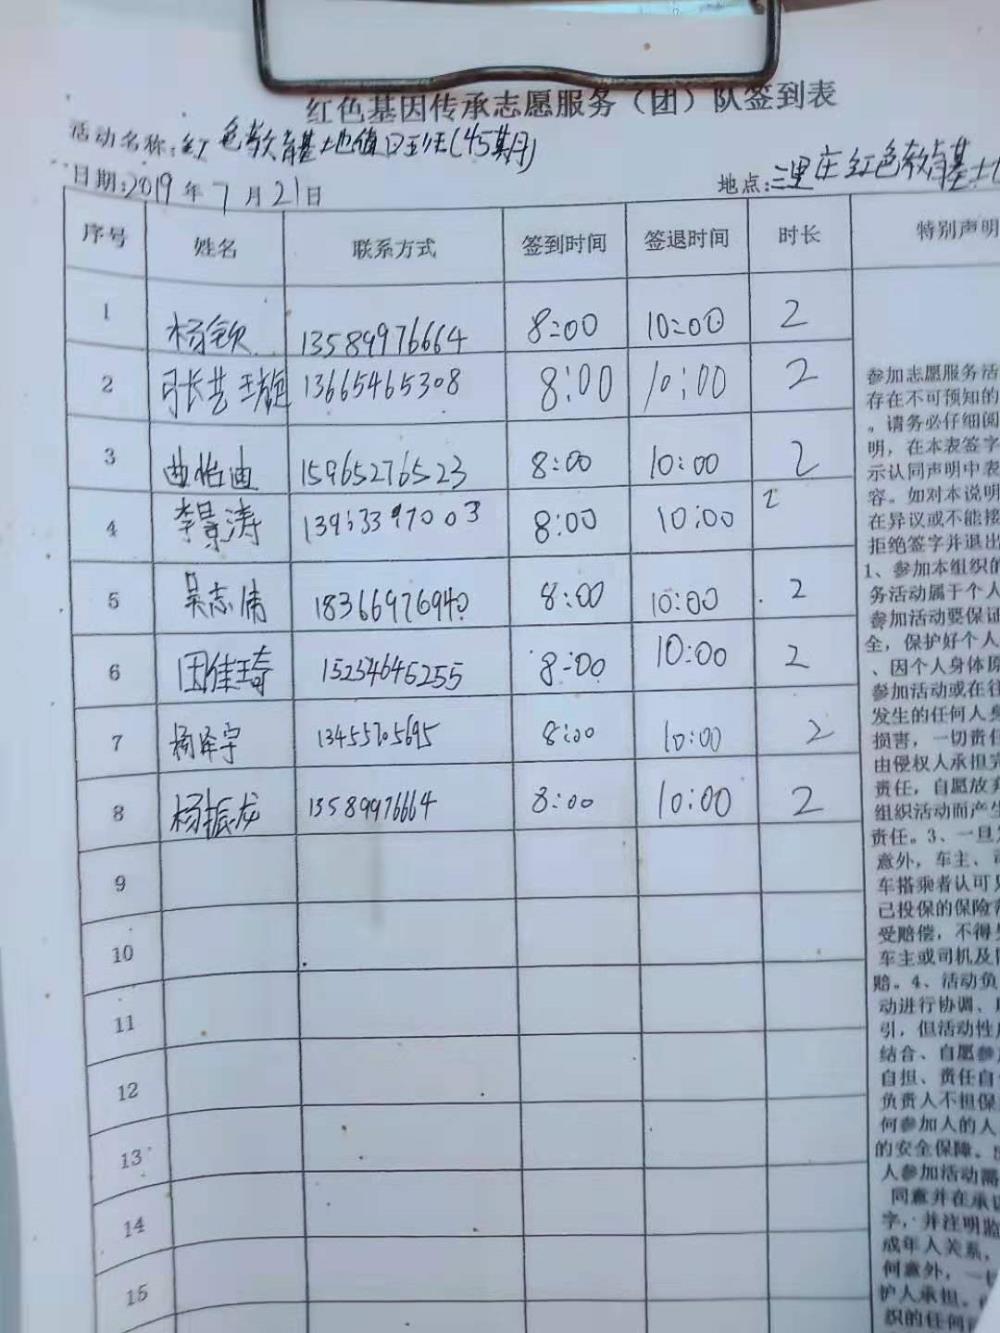 红色基因传承志愿服务（团）队签到表
活动名称:红色教育基地值日班(45期)
日期:2019年7月21日
地点:三里庄红色教育基
序号 姓名 联系方式 签到时间 签退时间 时长 特别声明
1 杨钦 13589976664 8:00 10:00 2
2 13665465308 8:00 10:00 2
3 曲怡迪 15965276523 8:00 10:00 2
4 李景涛 8:00 10:00 2
5 吴志倩 18366976940 8:00 10:00 2
6 田佳琦 15254646255 8:00 10:00 2
7 杨泽宇 8:00 10:00 2
8 杨振龙 13589976664 8:00 10:00 2
9
10
11
12
13
14
15
参加志愿服务活
存在不可预知的
。请务必仔细阅
明，在本表签字
示认同声明中表
容。如对本说明
在异议或不能接
拒绝签字并退出
1、参加本组织的
务活动属于个人
参加活动要保证
全，保护好个人
、因个人身体原
参加活动或在往
发生的任何人身
损害，一切责任
由侵权人承担完
责任，自愿放弃
组织活动而产生
责任。3、一旦
意外，车主、
车搭乘者认可
已投保的保险
受赔偿，不得
车主或司机及
赔。4、活动负
动进行协调、
引，但活动性
结合、自愿参
自担、责任自
负责人不担保
何参加人的人
的安全保障。
人参加活动需
同意并在承
字，并注明监
成年人关系，
何意外，一切
护人承担。
织的任何